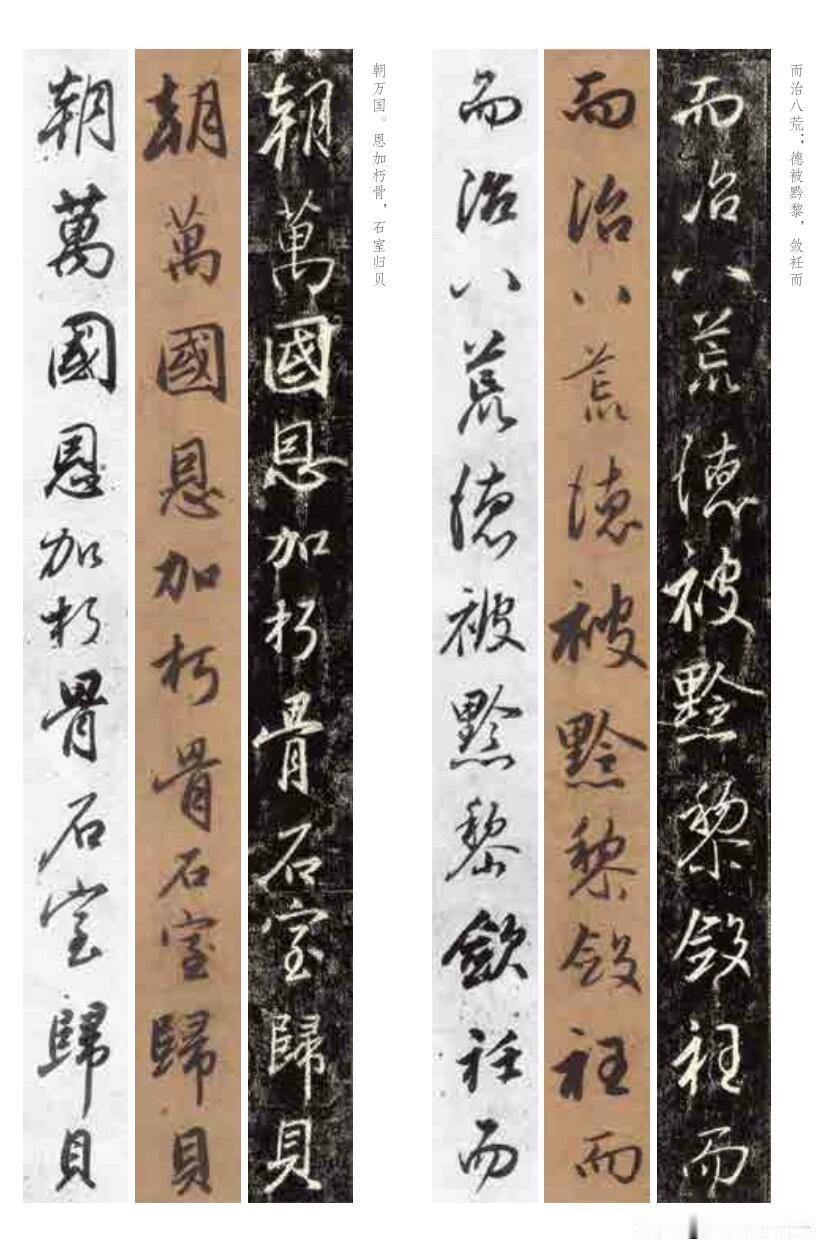 而治八荒；德被黔黎，敛衽而
而治八荒德被黔黎斂衽而
而治八荒德被黔黎斂衽而
而治八荒德被黔黎歛衽而
朝万国。恩加朽骨，石室归贝
朝萬國恩加朽骨石室歸貝
朝萬國恩加朽骨石室歸貝
朝萬國恩加朽骨石室歸貝